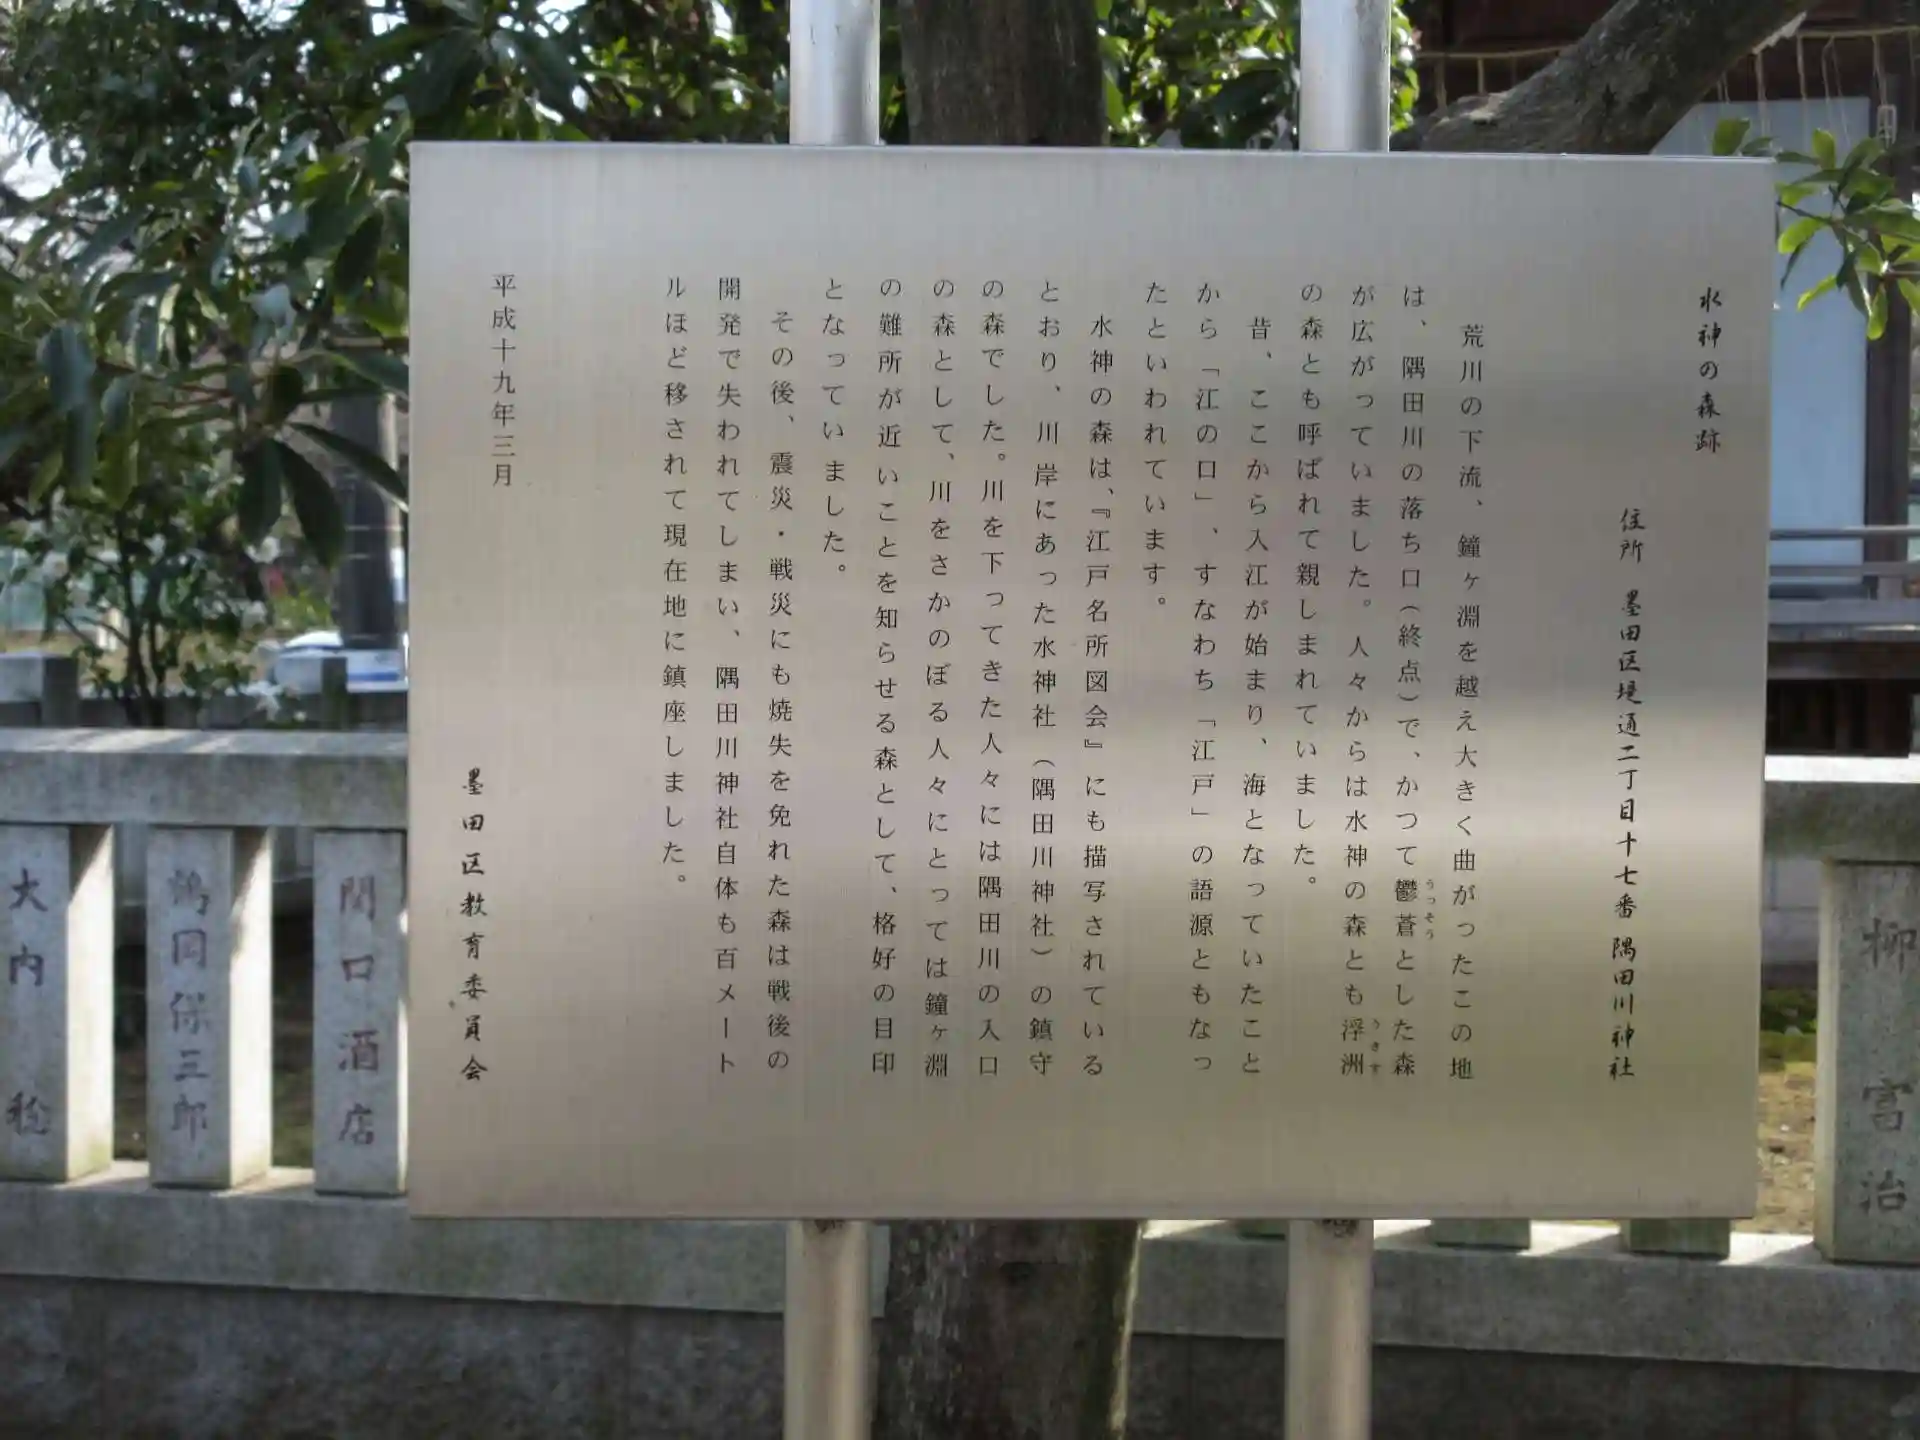 水神の森跡
住所 墨田区堤通二丁目十七番 隅田川神社
荒川の下流、鐘ヶ淵を越え大きく曲がったこの地
は、隅田川の落ち口(終点)で、かつて鬱蒼とした森
うっそう
が広がっていました。人々からは水神の森とも浮洲
うきす
の森とも呼ばれて親しまれていました。
昔、ここから入江が始まり、海となっていたこと
から「江の口」、すなわち「江戸」の語源ともなっ
たといわれています。
水神の森は、『江戸名所図会』にも描写されている
とおり、川岸にあった水神社(隅田川神社)の鎮守
の森でした。川を下ってきた人々には隅田川の入口
の森として、川をさかのぼる人々にとっては鐘ヶ淵
の難所が近いことを知らせる森として、格好の目印
となっていました。
その後、震災・戦災にも焼失を免れた森は戦後の
開発で失われてしまい、隅田川神社自体も百メート
ルほど移されて現在地に鎮座しました。
平成十九年三月
墨田区教育委員会
柳富治
関口酒店
鶴岡保三郎
大内 稔